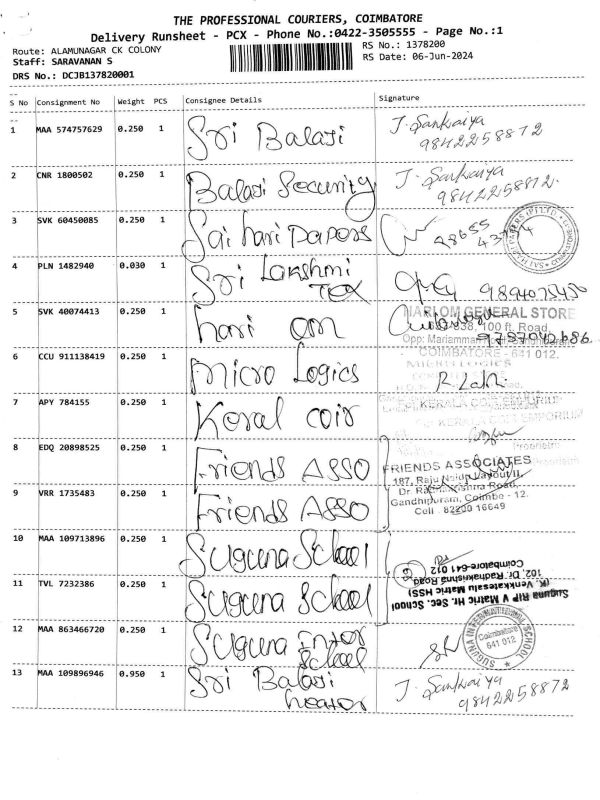 THE PROFESSIONAL COURIERS, COIMBATORE
Delivery Runsheet - PCX - Phone No.:0422-3505555 - Page No.:1
Route: ALAMUNAGAR CK COLONY
RS No.: 1378200
Staff: SARAVANAN S
RS Date: 06-Jun-2024
DRS No.: DCJB137820001
S No Consignment No Weight PCS Consignee Details Signature
1 MAA 574757629 0.250 1 Sri Balaji J. Sankaiya
9842258872
2 CNR 1800502 0.250 1 Balaji Security J. Sankaiya
9842258872.
3 SVK 60450085 0.250 1 Sai hari Papers 98655
4 PLN 1482940 0.030 1 Sri Lakshmi
Tex
5 SVK 40074413 0.250 1 hari om HARI OM GENERAL STORE
100 ft. Road,
Opp: Mariamman
COIMBATORE - 641 012.
6 CCU 911138419 0.250 1 Micro Logics
MICRO LOGICS
7 APY 784155 0.250 1 Keral coir KERALA COIR EMPORIUM
KERALA COIR EMPORIUM
Proprietor
8 EDQ 20898525 0.250 1 Friends ASSO FRIENDS ASSOCIATES
187, Raju Naidu Layout II,
9 VRR 1735483 0.250 1 Friends ASSO Dr. Radhakrishna Road,
Gandhipuram, Coimbe - 12.
Cell : 82200 16649
10 MAA 109713896 0.250 1 Suguna School
11 TVL 7232386 0.250 1 Suguna School Suguna RIP V Matric Hr. Sec. School
(K. Venkatesalu Matric HSS)
102, Dr. Radhakrishna Road
Coimbatore-641 012
12 MAA 863466720 0.250 1 Suguna Inter
School
SUGUNA INTERNATIONAL SCHOOL
Coimbatore
641 012
13 MAA 109896946 0.950 1 Sri Balaji
heator J. Sankaiya
9842258872